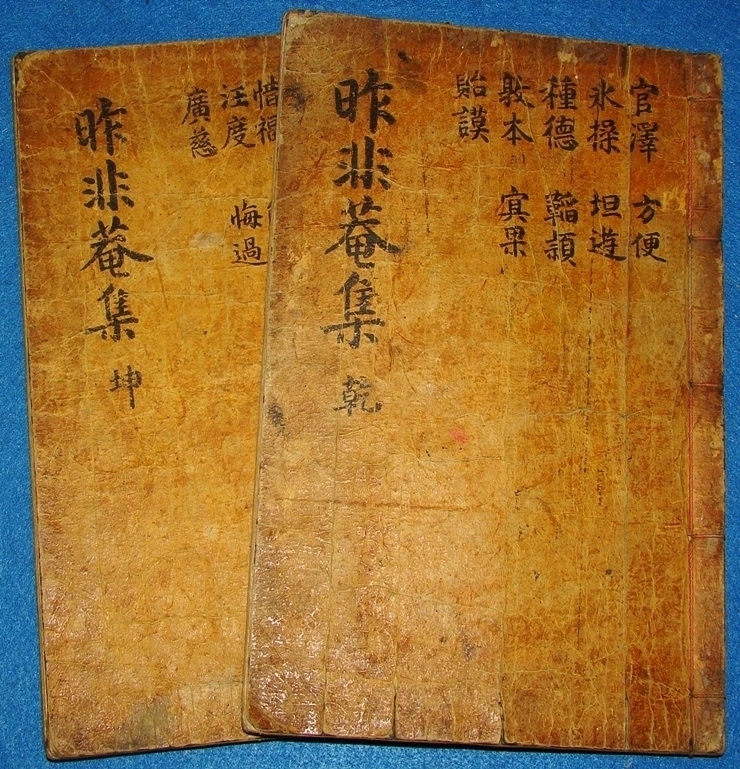 官澤 方便
氷操 坦遊
種德 韜頴
敦本 冥果
貽謨
昨非菴集 乾
惜福
汪度 悔過
廣慈
昨非菴集 坤